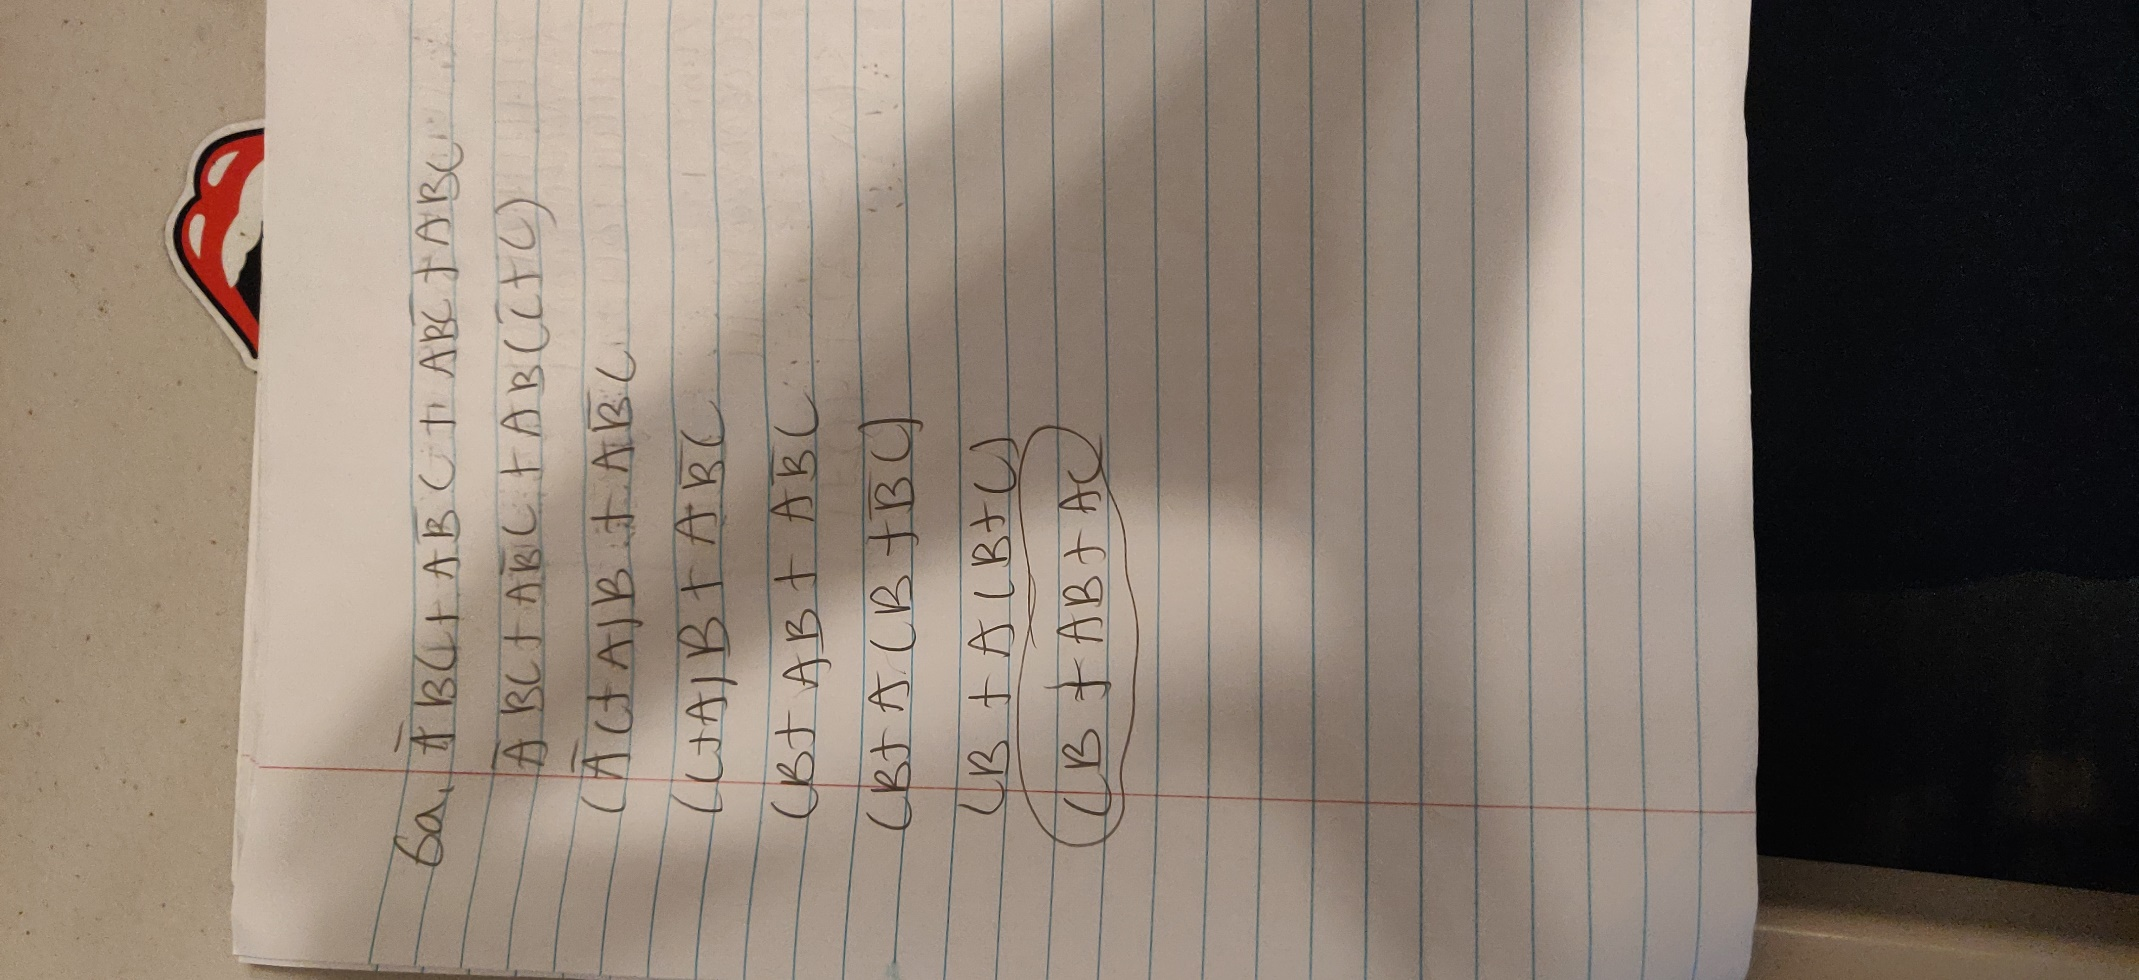 6a. A̅BC + AB̅C + ABC̅ + ABC
A̅BC + AB̅C + AB(C̅+C)
(A̅C+A)B + AB̅C
(C+A)B + AB̅C
CB + AB + AB̅C
CB + A(B + B̅C)
CB + A(B+C)
CB + AB + AC